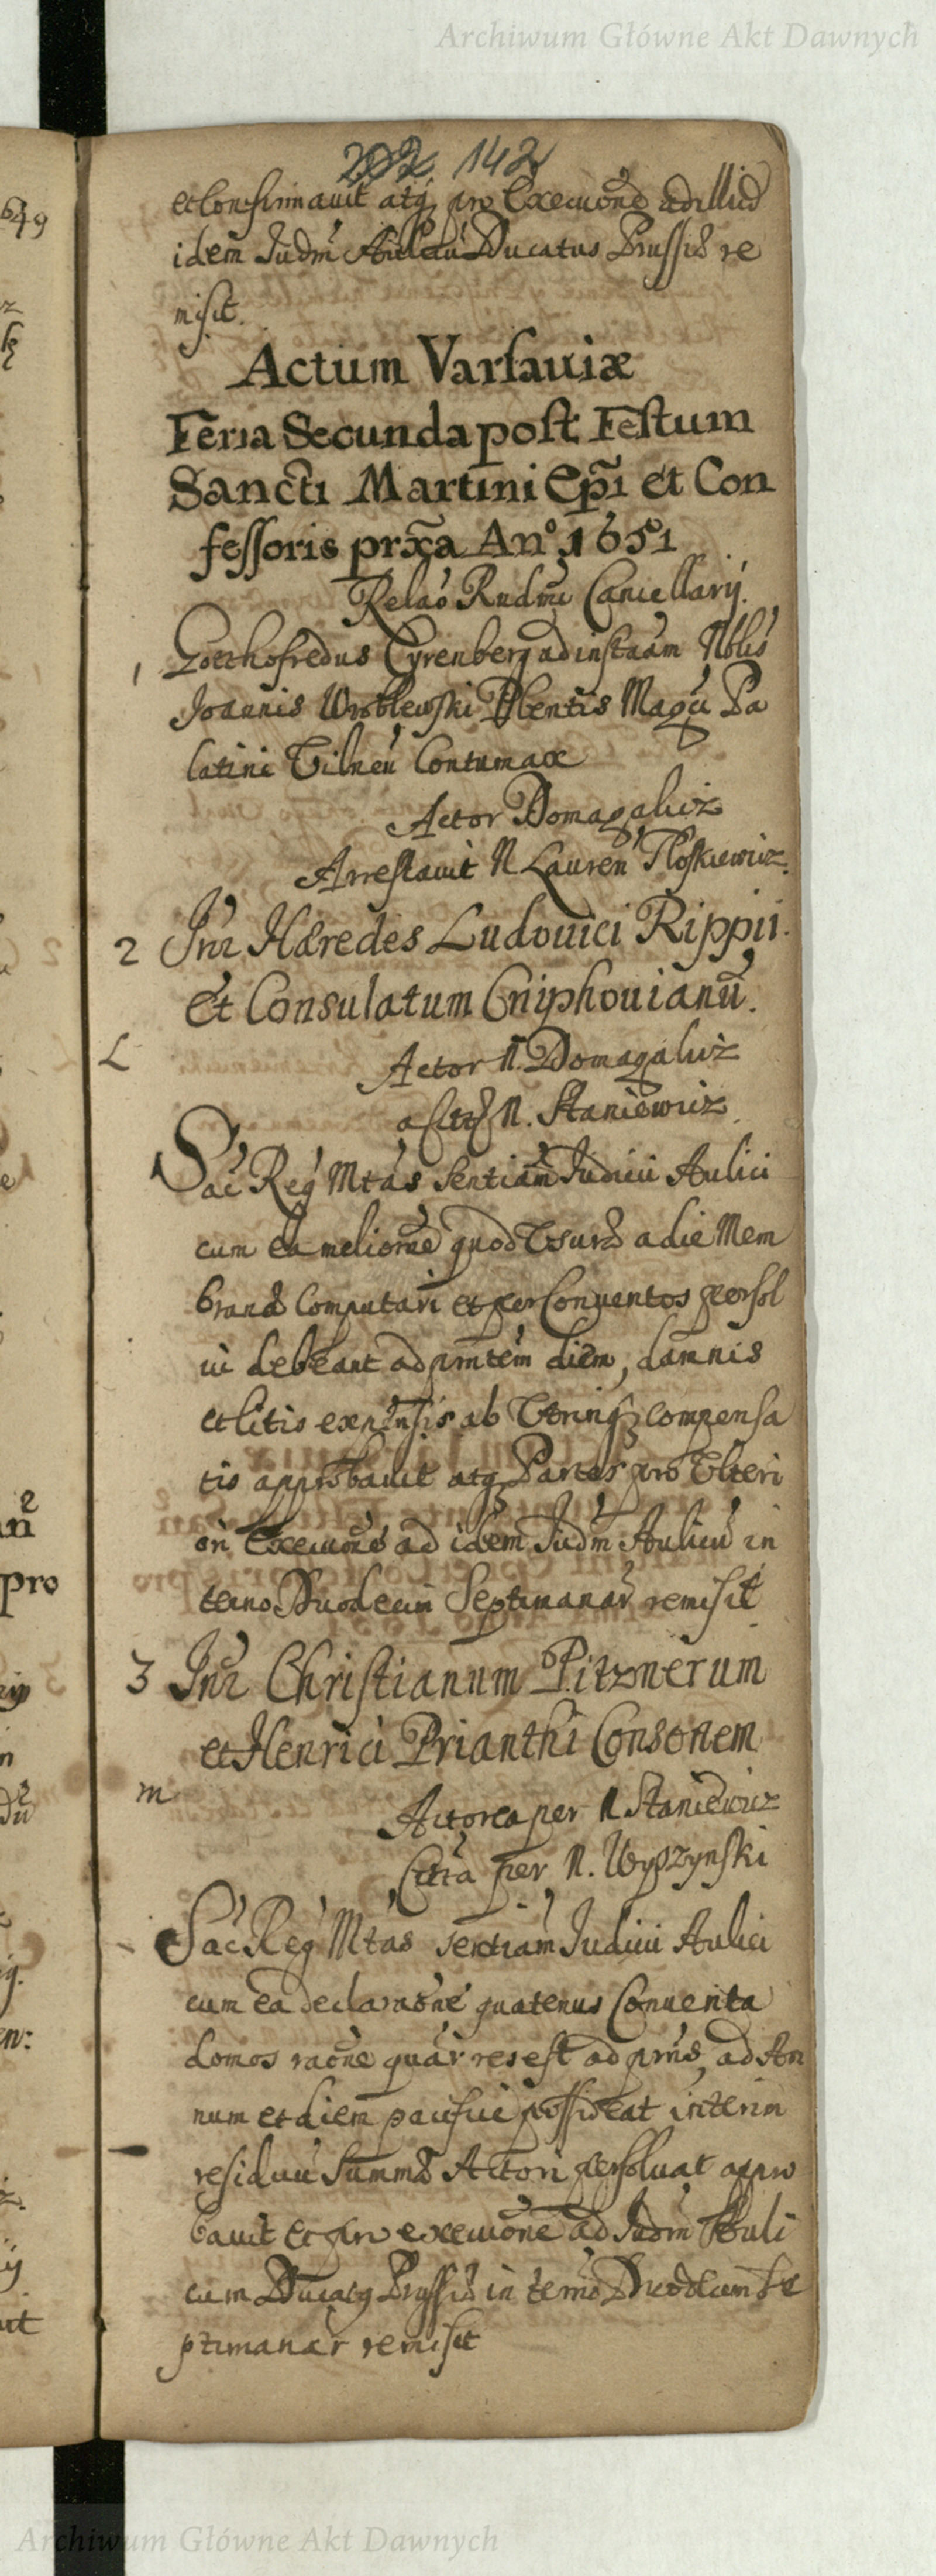 Archiwum Główne Akt Dawnych
202. 142
et Confirmavit atq pro Exeuoñe ad illud
idem Judm Aulicu Ducatus Prussiæ re
misit.
Actum Varsauiæ
Feria Secunda post Festum
Sancti Martini Epĩ et Con
fessoris prxã An° 1651
Relaõ Rndmi Cancellarÿ.
1 Gotthofredus Cyrenberg ad instaam Nblis
Joannis Wroblewski Plentis Magci Pa
latini Vilneñ Contumax
Actor Domagalicz
Arrestauit N Lauren Floskiewicz.
2 Inr Hæredes Ludouici Rippii.
et Consulatum Cniphouianũ.
L
Actor N. Domagalicz
N. Staniewicz
Sac Reg Mtás sentiam Judicii Aulici
cum ea melioroe quod Vsuræ a die Mem
branæ Computari et per Conuentos persol
ui debeant ad pmtem diem, damnis
et litis expensis ab Vtrinq compensa
tis approbauit atq Partes pro Vlteri
ori Exeuoñe ad idem Judm Aulicu in
termo Duodecim Septimanar remisit
3 Inr Christianum Pitznerum
et Henrici Prianthi Consortem
m
Actorea per N Staniewicz
Citta per N. Wyszynski
Sac Reg Mtas sentiam Judicii Aulici
cum ea declaraone quatenus Conuenta
domos raone quar res est ad pñs, ad An
num et diem pacifice possideat interim
residuu Summæ Actori persoluat appro
bauit et pro exeuone ad Judm Auli
cum Ducatq Prussiæ in termo Duodecim Se
ptimanar remisit
Archiwum Główne Akt Dawnych